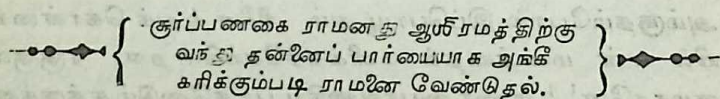 சூர்ப்பணகை ராமனது ஆஶிரமத்திற்கு
வந்து தன்னைப் பார்யையாக அங்கீ
கரிக்கும்படி ராமனை வேண்டுதல்.